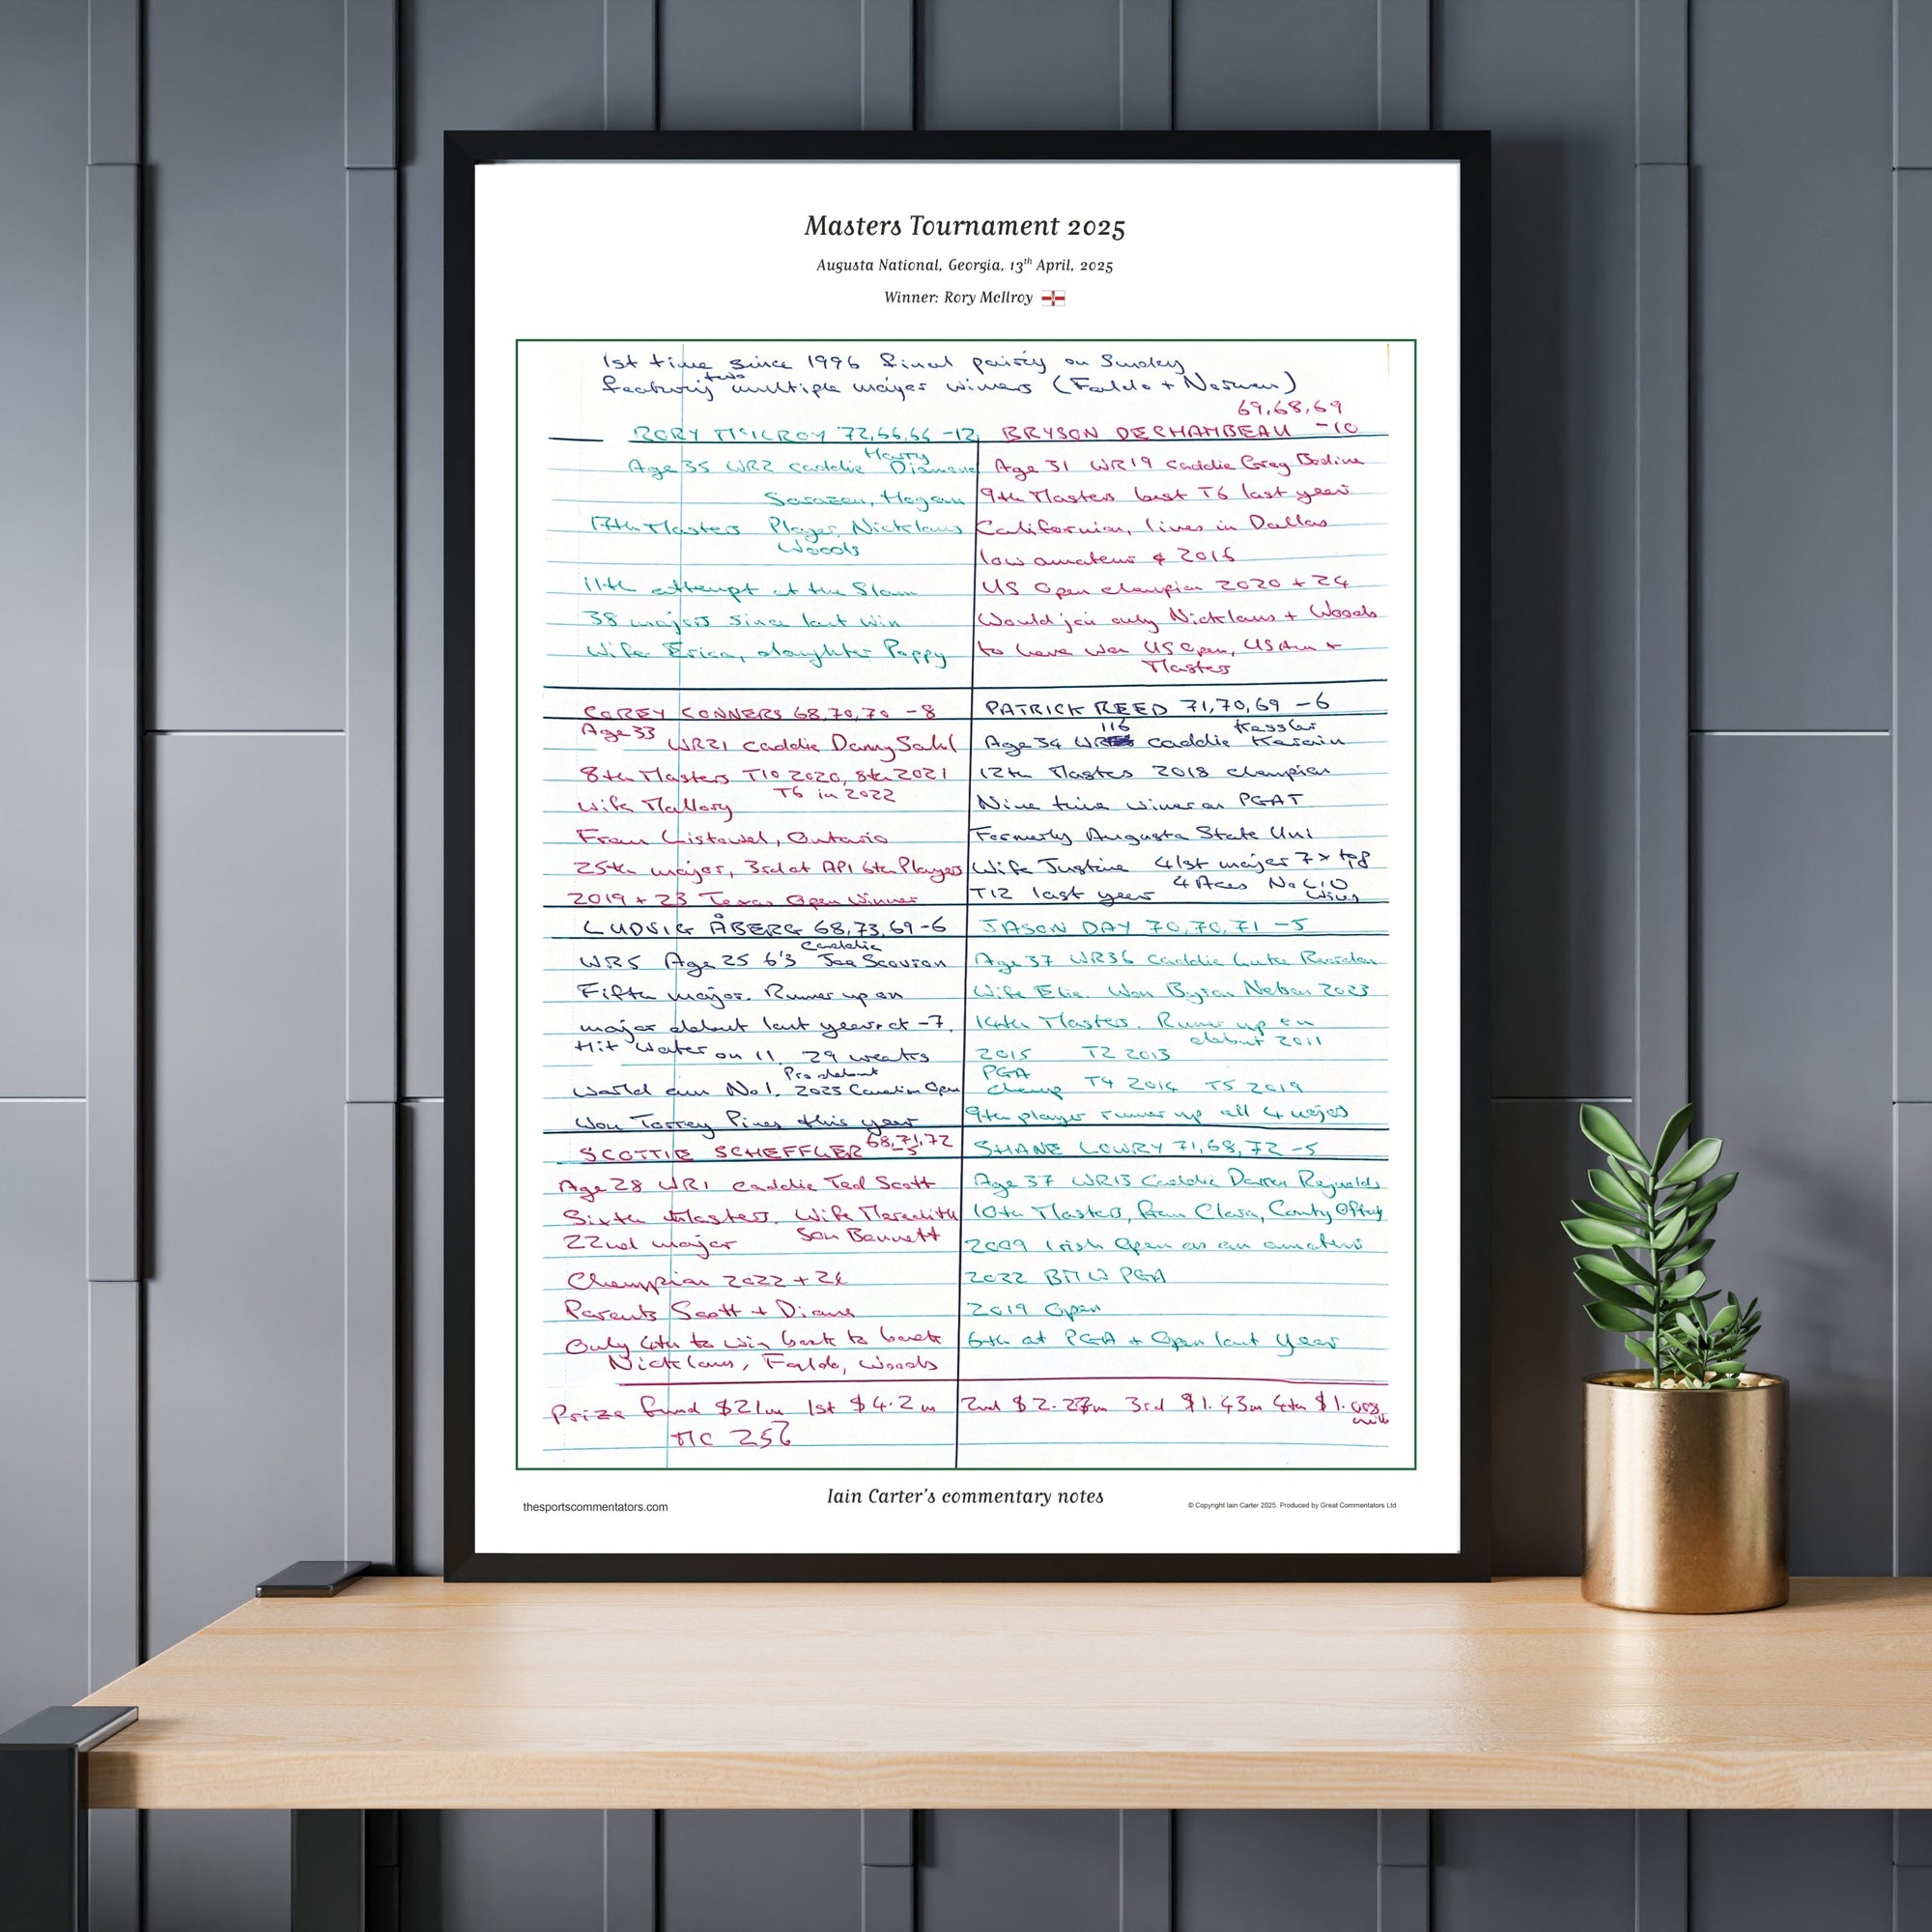 Masters Tournament 2025
Augusta National, Georgia, 13th April, 2025
Winner: Rory McIlroy
1st time since 1996 final pairing on Sunday
featuring two multiple major winners (Faldo + Norman)
RORY McILROY 72,66,66 -12
Age 35 WR2 caddie Harry Diamond
Sarazen, Hogan
17th Masters Player, Nicklaus
Woods
11th attempt at the Slam
38 majors since last win
Wife Erica, daughter Poppy
69,68,69
BRYSON DECHAMBEAU -10
Age 31 WR19 caddie Greg Bodine
9th Masters best T6 last year
Californian, lives in Dallas
low amateur 2016
US Open champion 2020 + 24
Would join only Nicklaus + Woods
to have won US Open, US Am +
Masters
COREY CONNERS 68,70,70 -8
Age 33
WR21 caddie Danny Sahl
8th Masters T10 2020, 8th 2021
T6 in 2022
Wife Mallory
From Listowel, Ontario
25th major, 3rd at API 6th Players
2019 + 23 Texas Open Winner
PATRICK REED 71,70,69 -6
Age 34 WR 116 caddie Kessler Karain
12th Masters 2018 champion
Nine time winner on PGAT
Formerly Augusta State Uni
Wife Justine 41st major 7 x top
T12 last year 4 Aces No LIV
wins
LUDVIG ÅBERG 68,73,69 -6
WR5 Age 25 6'3 Caddie Joe Scovron
Fifth major. Runner up on
major debut last year at -7.
Hit water on 11. 29 weeks
Pro debut
world am No1. 2023 Canadian Open
Won Torrey Pines this year
JASON DAY 70,70,71 -5
Age 37 WR36 Caddie Luke Reardon
Wife Ellie. Won Byron Nelson 2023
14th Masters. Runner up on
debut 2011
2015 T2 2013
PGA
Champ T4 2016 T5 2019
9th player runner up all 4 majors
SCOTTIE SCHEFFLER 68,71,72
-5
Age 28 WR1 caddie Ted Scott
Sixth Masters. Wife Meredith
22nd major Son Bennett
Champion 2022 + 24
Parents Scott + Diane
Only 4th to win back to back
Nicklaus, Faldo, Woods
SHANE LOWRY 71,68,72 -5
Age 37 WR13 Caddie Darren Reynolds
10th Masters, from Clara, County Offaly
2009 Irish Open as an amateur
2022 BMW PGA
2019 Open
6th at PGA + Open last year
Prize fund $21m 1st $4.2m 2nd $2.27m 3rd $1.43m 4th $1.008
mill
MC 256
Iain Carter's commentary notes
thesportscommentators.com
© Copyright Iain Carter 2025. Produced by Great Commentators Ltd